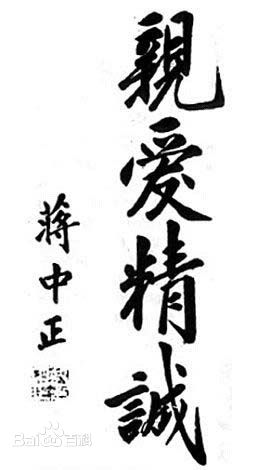 親愛精誠
蔣中正
Baidu百科